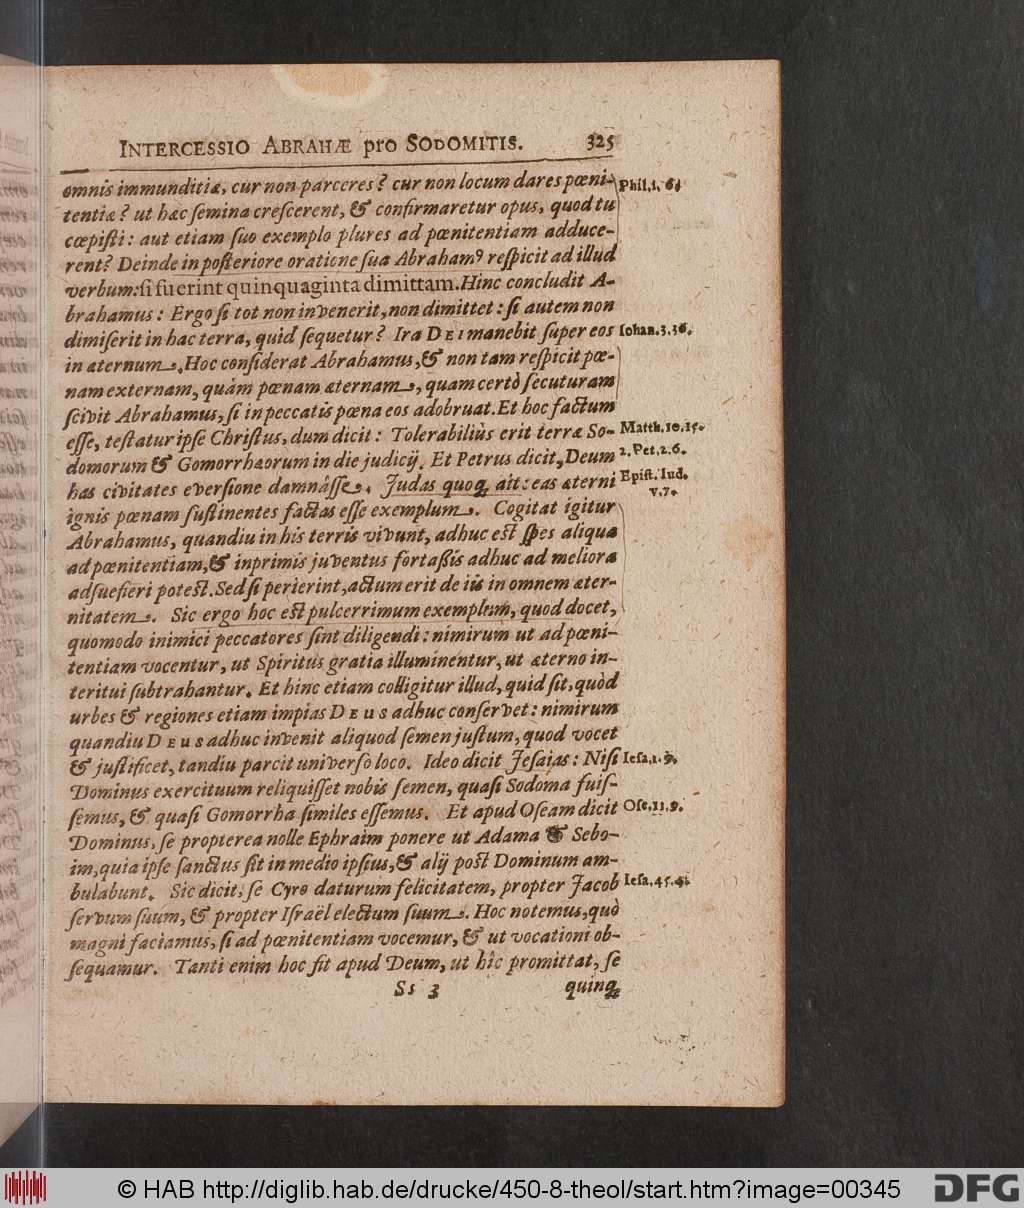 INTERCESSIO ABRAHÆ pro SODOMITIS. 325
omnis immunditiæ, cur non parceres? cur non locum dares pœni- Phil.1.6.
tentiæ? ut hæc ſemina creſcerent, & confirmaretur opus, quod tu
cœpiſti: aut etiam ſuo exemplo plures ad pœnitentiam adduce-
rent? Deinde in poſteriore oratione ſua Abrahamꝰ reſpicit ad illud
verbum: ſi fuerint quinquaginta dimittam. Hinc concludit A-
brahamus: Ergo ſi tot non invenerit, non dimittet: ſi autem non
dimiſerit in hac terra, quid ſequetur? Ira DEI manebit ſuper eos Iohan.3.36.
in æternum. Hoc conſiderat Abrahamus, & non tam reſpicit pœ-
nam externam, quàm pœnam æternam, quam certò ſecuturam
ſcivit Abrahamus, ſi in peccatis pœna eos adobruat. Et hoc factum
eſſe, teſtatur ipſe Chriſtus, dum dicit: Tolerabiliùs erit terræ So- Matth.10.15.
domorum & Gomorrhæorum in die judicij. Et Petrus dicit, Deum 2. Pet.2.6.
has civitates everſione damnâſſe. Judas quoq; ait: eas æterni Epiſt. Iud.
v.7.
ignis pœnam ſuſtinentes factas eſſe exemplum. Cogitat igitur
Abrahamus, quandiu in his terris vivunt, adhuc eſt ſpes aliqua
ad pœnitentiam, & inprimis juventus fortaßis adhuc ad meliora
adſuefieri poteſt. Sed ſi perierint, actum erit de iis in omnem æter-
nitatem. Sic ergo hoc eſt pulcerrimum exemplum, quod docet,
quomodo inimici peccatores ſint diligendi: nimirum ut ad pœni-
tentiam vocentur, ut Spiritus gratia illuminentur, ut æterno in-
teritui ſubtrahantur. Et hinc etiam colligitur illud, quid ſit, quòd
urbes & regiones etiam impias DEUS adhuc conſervet: nimirum
quandiu DEUS adhuc invenit aliquod ſemen juſtum, quod vocet
& juſtificet, tandiu parcit univerſo loco. Ideo dicit Jeſaias: Niſi Ieſa.1.9.
Dominus exercituum reliquiſſet nobis ſemen, quaſi Sodoma fuiſ-
ſemus, & quaſi Gomorrha ſimiles eſſemus. Et apud Oſeam dicit Oſe.11.9.
Dominus, ſe propterea nolle Ephraim ponere ut Adama & Sebo-
im, quia ipſe ſanctus ſit in medio ipſius, & alij poſt Dominum am-
bulabunt. Sic dicit, ſe Cyro daturum felicitatem, propter Jacob Ieſa.45.4.
ſervum ſuum, & propter Iſraël electum ſuum. Hoc notemus, quò
magni faciamus, ſi ad pœnitentiam vocemur, & ut vocationi ob-
ſequamur. Tanti enim hoc fit apud Deum, ut hîc promittat, ſe
Ss 3 quinq;
© HAB http://diglib.hab.de/drucke/450-8-theol/start.htm?image=00345
DFG